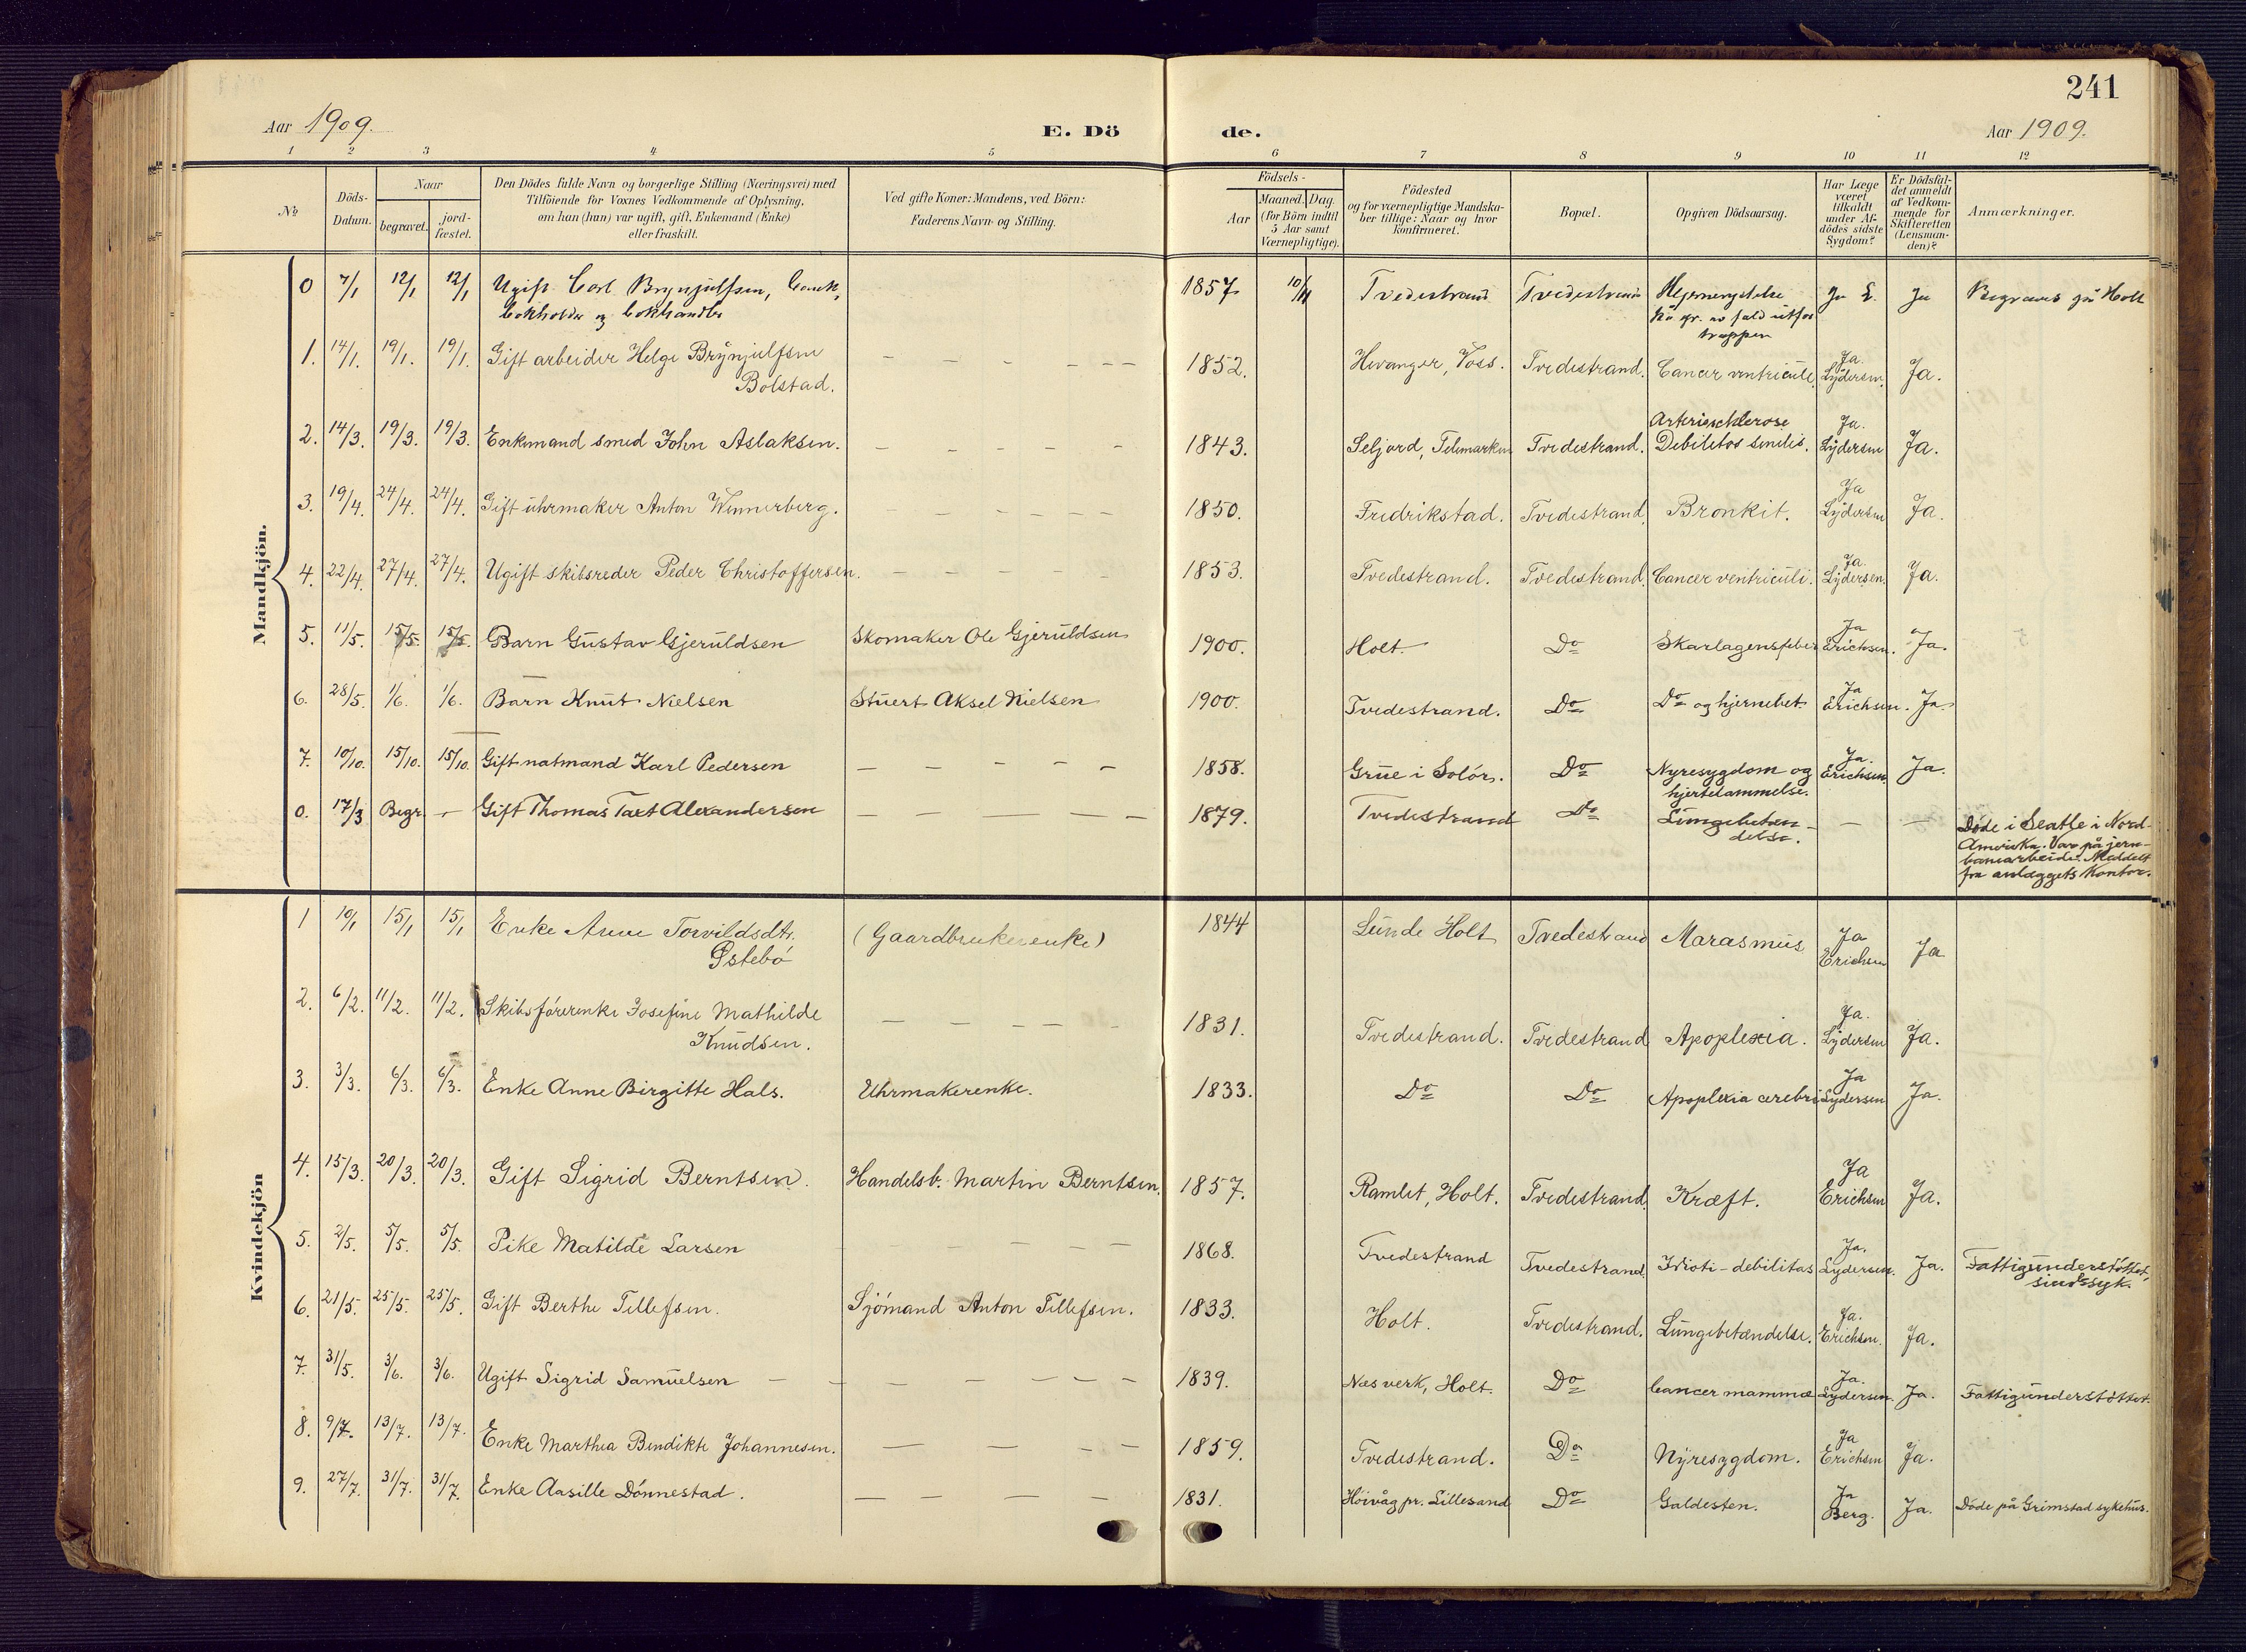 241
Aar 1909.
E. Dö
de.
Aar 1909.
1 2 3 4 5 6 7 8 9 10 11 12
No
Döds-Datum.
Naar
begravet.
jord-fæstet.
Den Dödes fulde Navn og borgerlige Stilling (Næringsvei) med
Tilföiende for Voxnes Vedkommende af Oplysning,
om han (hun) var ugift, gift, Enkemand (Enke)
eller fraskilt.
Ved gifte Koner: Mandens, ved Börn:
Faderens Navn og Stilling.
Födsels-
Aar
Maaned. Dag.
(for Börn indtil
5 Aar samt
Værnepligtige).
Födested
og for værnepligtige Mandska-
ber tillige: Naar og hvor
konfirmeret.
Bopæl.
Opgiven Dödsaarsag.
Har Læge
været
tilkaldt
under Af-
dödes sidste
Sygdom?
Er Dödsfal-
det anmeldt
af Vedkom-
mende for
Skifteretten
(Lensman-
den)?
Anmærkninger.
Mandkjön.
0 7/1 12/1 12/1 Ugift Carl Brynjulfsen, 1857 10/11 Tvedestrand Tvedestrand Hjernerystelse Ja L. Ja Begraves på Holt
bokholder og bokhandler på gr. av fald utfor
trappen
1. 14/1. 19/1. 19/1. Gift arbeider Helge Brynjulfsen – – – – – – 1852. Voss. Tvedestrand. Cancer ventriculi Ja. Lydersen. Ja.
Bolstad.
2. 14/3. 19/3. 19/3. Enkemand smed John Aslaksen. – – – – – 1843. Seljord, Telemarken Tvedestrand. Arteriosklerose Debilitas senilis. Ja. Lydersen Ja.
3. 19/4. 24/4. 24/4. Gift uhrmaker Anton Wennerberg. – – – – – – 1850. Fredrikstad. Tvedestrand. Bronkit. Ja Lydersen Ja.
4. 22/4. 27/4. 27/4. Ugift skibsreder Peder Christoffersen. – – – – – 1853. Tvedestrand. Tvedestrand. Cancer ventriculi. Ja. Lydersen. Ja.
5. 11/5. 15/5. 15/5. Barn Gustav Gjeruldsen Skomaker Ole Gjeruldsen 1900. Holt. Do Skarlagensfeber Ja Erichsen. Ja.
6. 28/5. 1/6. 1/6. Barn Knut Nielsen Stuert Aksel Nielsen 1900. Tvedestrand. Do Do og hjernebet. Ja Erichsen. Ja.
7. 10/10. 15/10. 15/10. Gift natmand Karl Pedersen – – – – – 1858. Grue i Solör. Do Nyresygdom og Ja. Erichsen. Ja.
hjertelammelse.
0. 17/3 Begr. – Gift Thomas Taxt Alexandersen – – – – – 1879. Tvedestrand Do Lungebeten- – – Döde i Seatle i Nord-
delse. Amerika. Var på jern-
banearbeide. Meddelt
fra anlæggets kontor.
Kvindekjön
1 10/1 15/1 15/1 Enke Anne Torvildsdtr. (Gaardbrukerenke) 1844 Lunde Holt Tvedestrand Marasmus Ja Erichsen Ja
Östebö
2. 6/2. 11/2. 11/2. Skibsförerenke Josefine Mathilde – – – – – 1831. Tvedestrand. Tvedestrand Apoplexia. Ja. Lydersen Ja.
Knudsen.
3. 3/3. 6/3. 6/3. Enke Anne Birgitte Hals. Uhrmakerenke. 1833. Do Do Apoplexia cerebri Ja Lydersen Ja.
4. 15/3. 20/3. 20/3. Gift Sigrid Berntsen. Handelsb. Martin Berntsen. 1857. Ramlet, Holt. Tvedestrand. Kræft. Ja Erichsen Ja.
5. 2/5. 5/5. 5/5. Pike Matilde Larsen – – – – – 1868. Tvedestrand Tvedestrand. Idioti-debilitas Ja. Lydersen. Ja. Fattigunderstöttet,
sindssyk.
6. 21/5. 25/5. 25/5. Gift Berthe Tellefsen. Sjömand Anton Tellefsen. 1833. Holt. Tvedestrand. Lungebetændelse. Ja. Erichsen. Ja.
7. 31/5. 3/6. 3/6. Ugift Sigrid Samuelsen – – – – – – – 1839. Næs verk, Holt. Do Cancer mammæ Ja. Lydersen. Ja. Fattigunderstöttet.
8. 9/7. 13/7. 13/7. Enke Marthea Bendikte Johannesen. – – – – 1859. Tvedestrand. Do Nyresygdom. Ja Erichsen Ja.
9. 27/7. 31/7. 31/7. Enke Aasille Dönnestad. – – – – 1831. Höivåg pr. Lillesand Do Galdesten. Ja Berg. Ja. Döde på Grimstad sykehus.